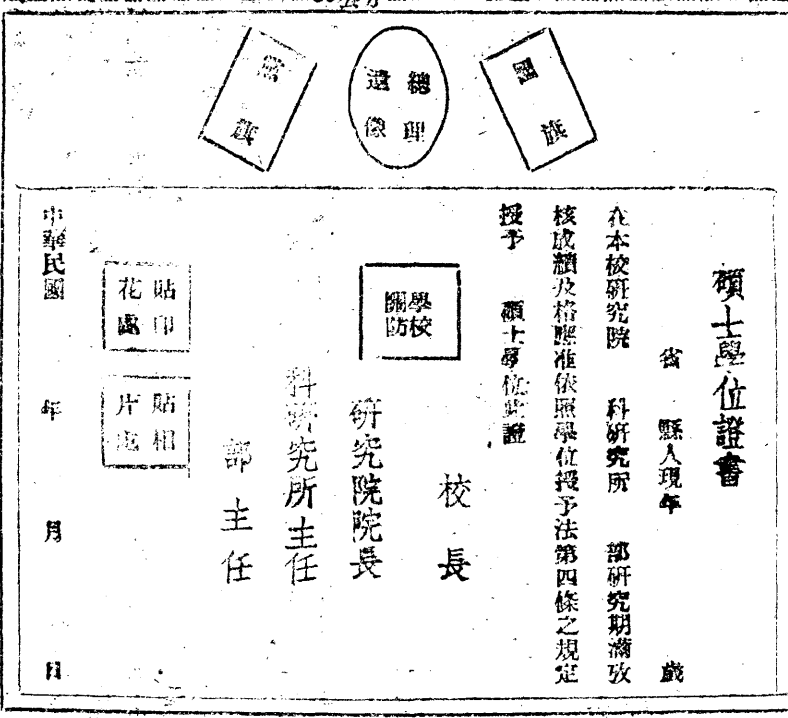 國旗
總理
遺像
黨旗
碩士學位證書
省 縣人現年 歲
在本校研究院 科研究所 部研究期滿攷
核成績及格應准依照學位授予法第四條之規定
授予 碩士學位此證
校長
學校
關防
研究院院長
科研究所主任
部主任
貼印
花處
貼相
片處
中華民國 年 月 日